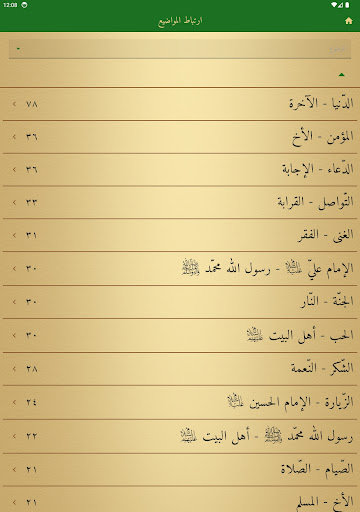 12:08
ارتباط المواضيع
الدّنيا - الآخرة ٧٨
المؤمن - الأخ ٣٦
الدّعاء - الإجابة ٣٦
التّواصل - القرابة ٣٣
الغنى - الفقر ٣١
الإمام عليّ - رسول الله محمّد ﷺ ٣٠
الجنّة - النّار ٣٠
الحب - أهل البيت ٣٠
الشّكر - النّعمة ٢٨
الزّيارة - الإمام الحسين ٢٤
رسول الله محمّد ﷺ - أهل البيت ٢٢
الصّيام - الصّلاة ٢١
الأخ - المسلم ٢١